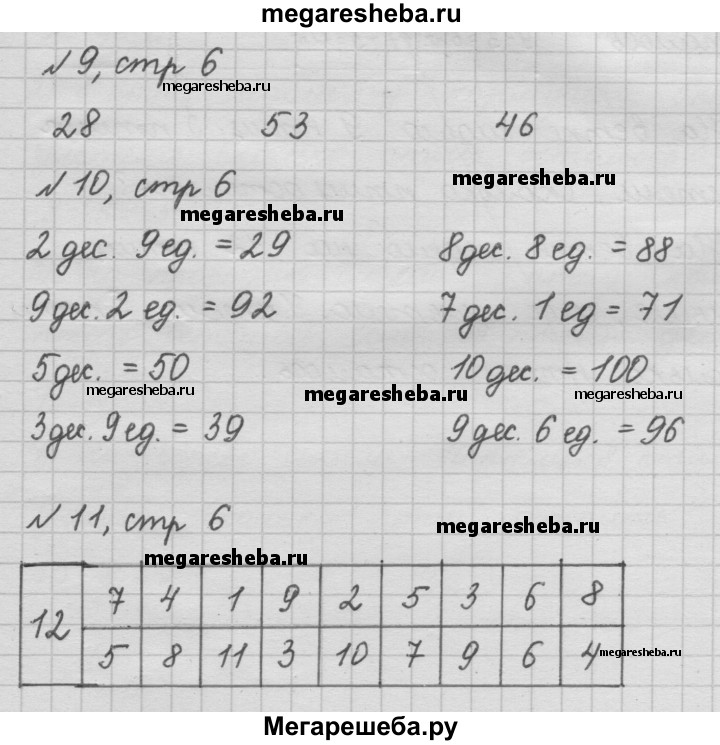 megaresheba.ru
№ 9, стр 6
megaresheba.ru
28 53 46
№ 10, стр 6
megaresheba.ru
megaresheba.ru
2 дес. 9 ед. = 29 8 дес. 8 ед. = 88
9 дес. 2 ед. = 92 7 дес. 1 ед = 71
5 дес. = 50 10 дес. = 100
megaresheba.ru megaresheba.ru megaresheba.ru
3 дес. 9 ед. = 39 9 дес. 6 ед. = 96
№ 11, стр 6
megaresheba.ru
megaresheba.ru
12
7 4 1 9 2 5 3 6 8
5 8 11 3 10 7 9 6 4
megaresheba.ru
Мегарешеба.ру